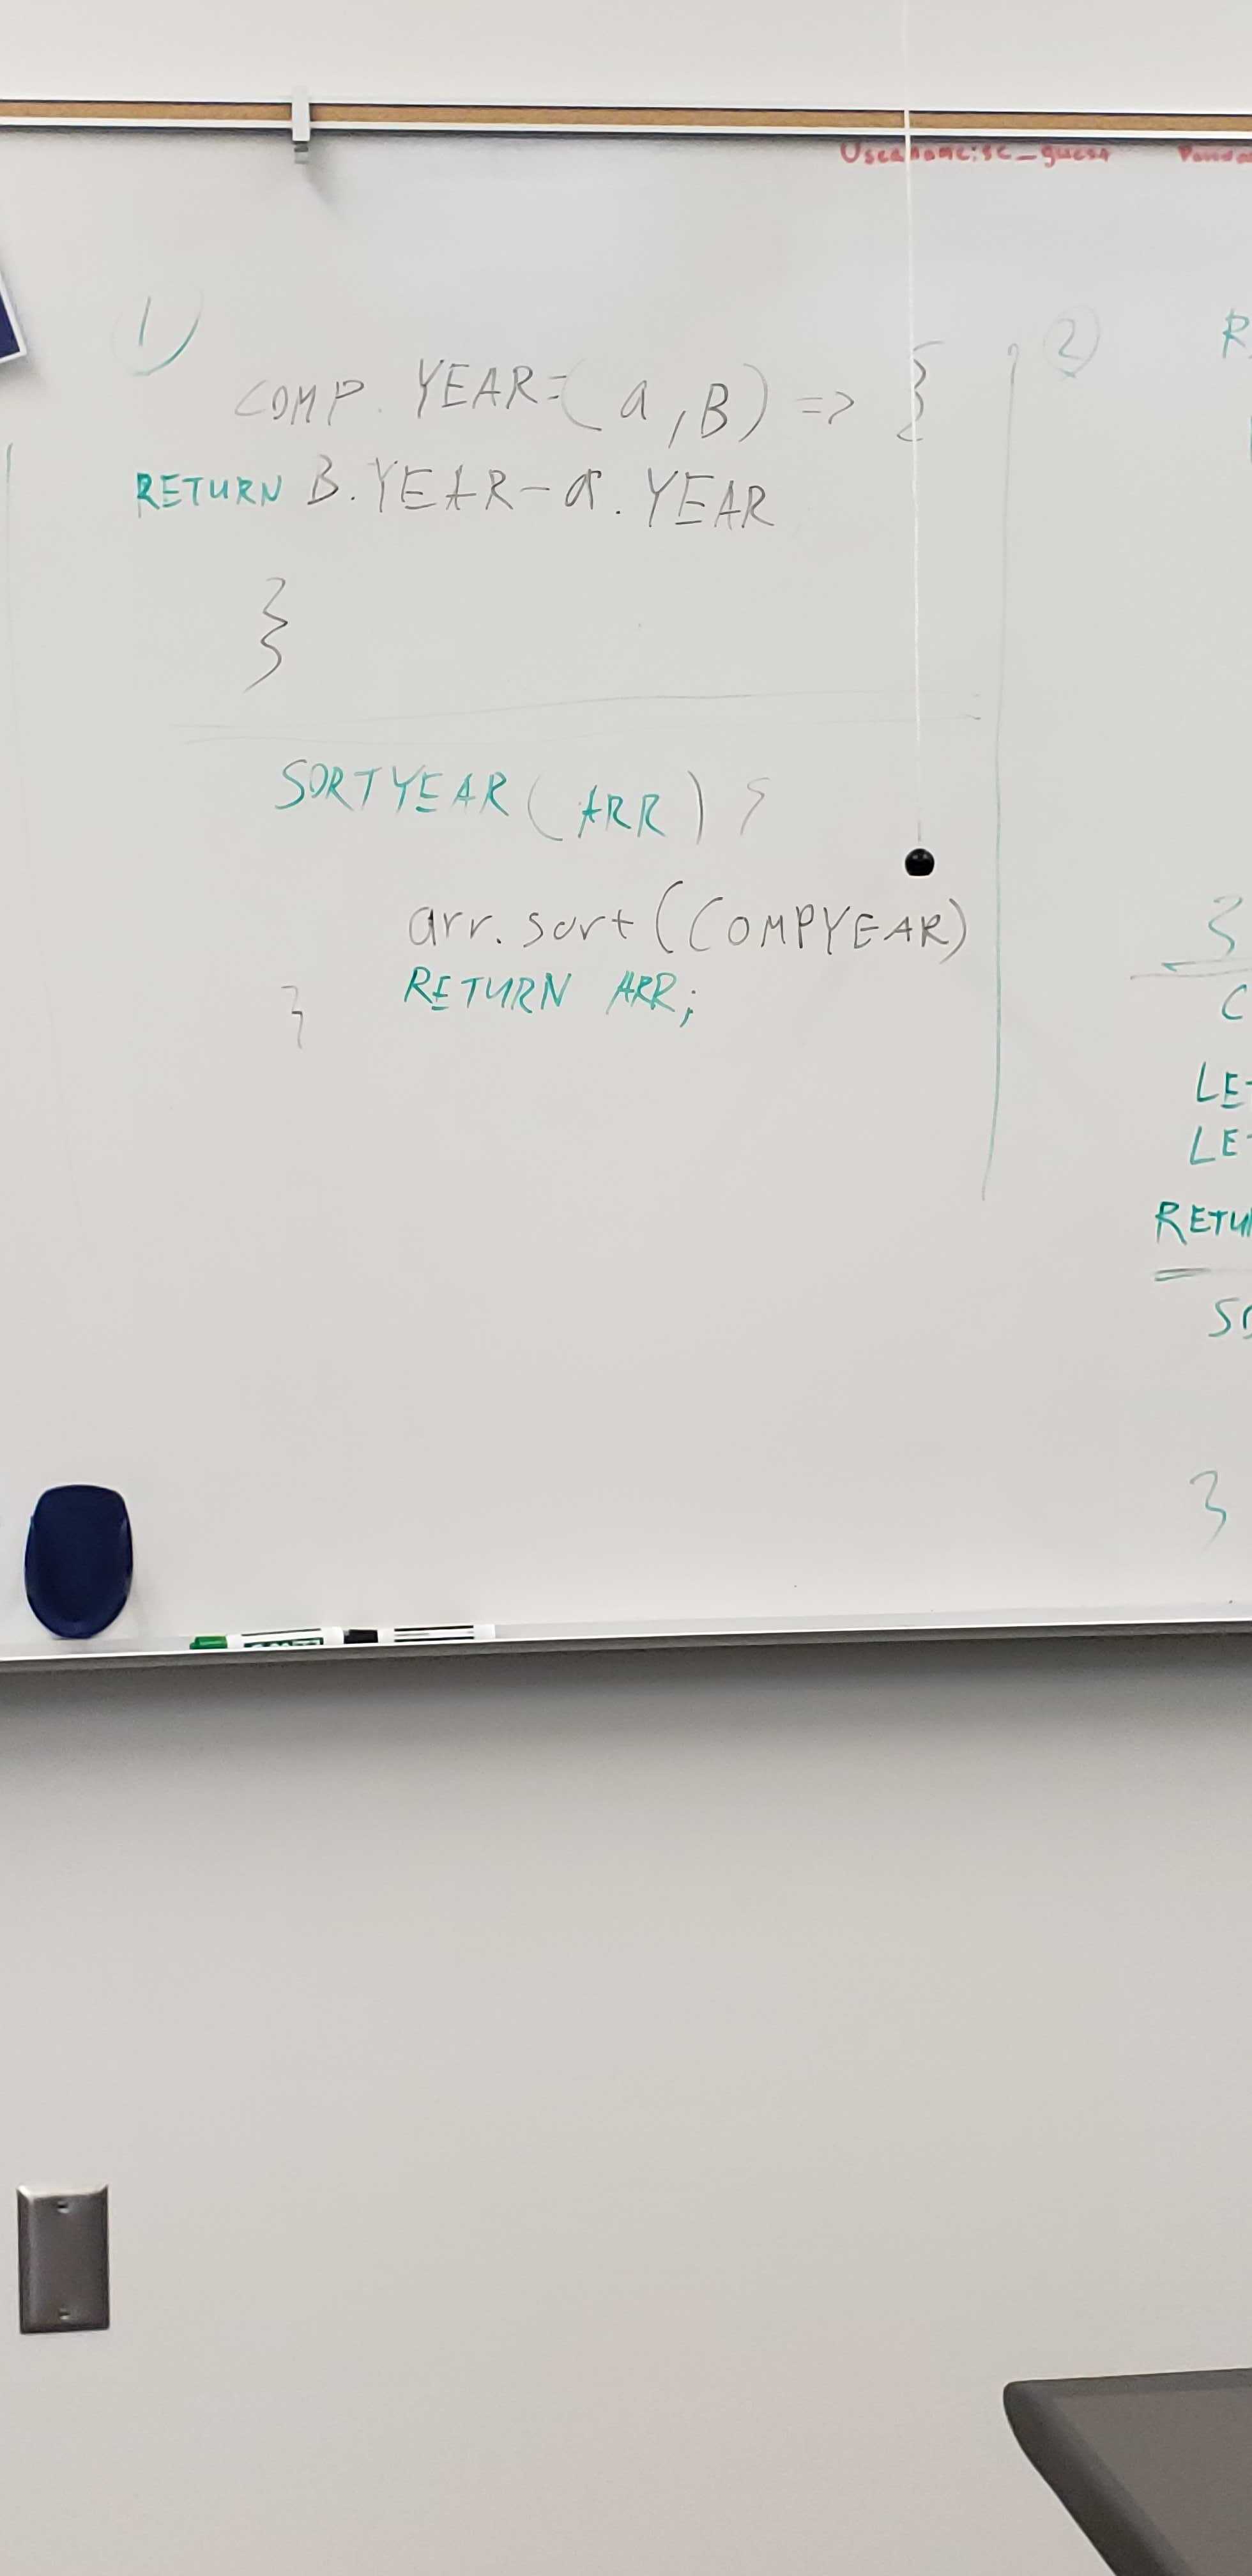 Username: sc_guest
1)
COMP. YEAR=(a,B) => {
RETURN B.YEAR-a.YEAR
}
SORTYEAR(ARR) {
arr.sort(COMPYEAR)
RETURN ARR;
}
2
R
}
C
LE
LE
RETU
SO
}